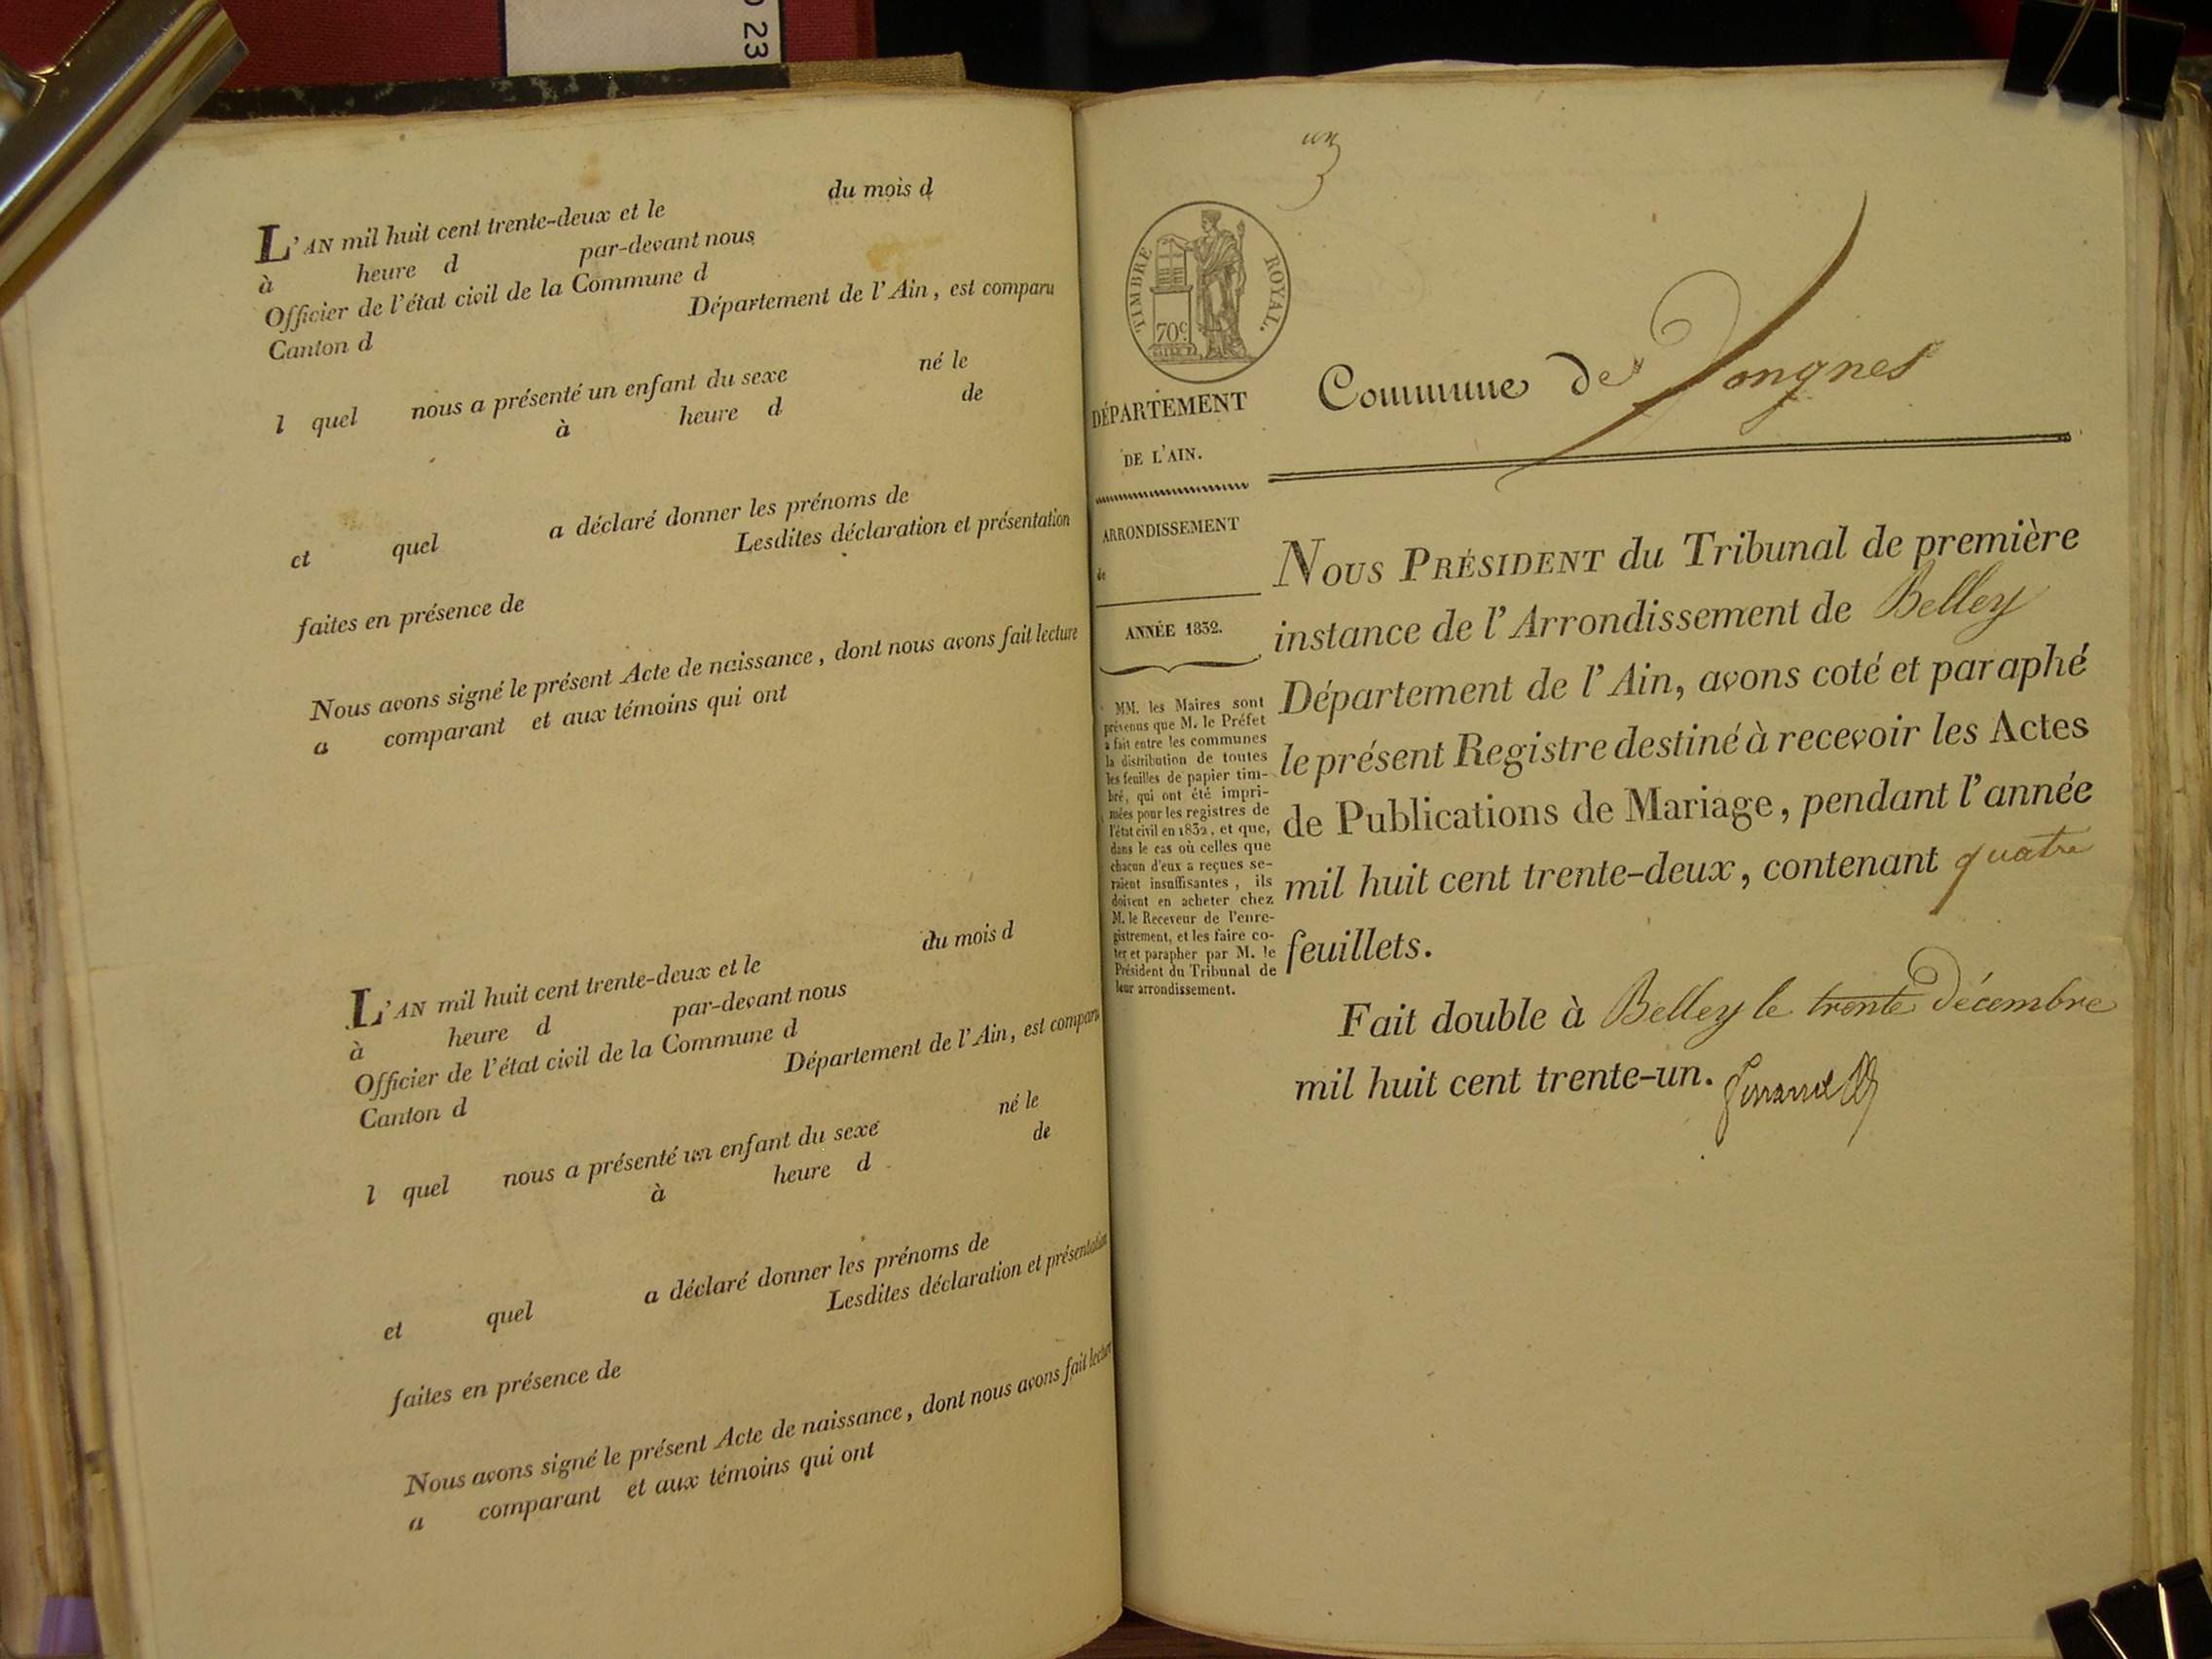 23
L'AN mil huit cent trente-deux et le du mois d
à heure d par-devant nous
Officier de l'état civil de la Commune d
Canton d Département de l'Ain, est comparu
l quel nous a présenté un enfant du sexe né le
à heure d de
et quel a déclaré donner les prénoms de
Lesdites déclaration et présentation
faites en présence de
Nous avons signé le présent Acte de naissance, dont nous avons fait lecture
a comparant et aux témoins qui ont
L'AN mil huit cent trente-deux et le du mois d
à heure d par-devant nous
Officier de l'état civil de la Commune d
Canton d Département de l'Ain, est comparu
l quel nous a présenté un enfant du sexe né le
à heure d de
et quel a déclaré donner les prénoms de
Lesdites déclaration et présentation
faites en présence de
Nous avons signé le présent Acte de naissance, dont nous avons fait lecture
a comparant et aux témoins qui ont
un
TIMBRE ROYAL.
70c.
DÉPARTEMENT
DE L'AIN.
ARRONDISSEMENT
de
ANNÉE 1832.
MM. les Maires sont
prévenus que M. le Préfet
a fait entre les communes
la distribution de toutes
les feuilles de papier tim-
bré, qui ont été impri-
mées pour les registres de
l'état civil en 1832, et que,
dans le cas où celles que
chacun d'eux a reçues se-
raient insuffisantes, ils
doivent en acheter chez
M. le Receveur de l'enre-
gistrement, et les faire co-
ter et parapher par M. le
Président du Tribunal de
leur arrondissement.
Commune de Vongnes
NOUS PRÉSIDENT du Tribunal de première
instance de l'Arrondissement de Belley
Département de l'Ain, avons coté et paraphé
le présent Registre destiné à recevoir les Actes
de Publications de Mariage, pendant l'année
mil huit cent trente-deux, contenant quatre
feuillets.
Fait double à Belley le trente Décembre
mil huit cent trente-un.